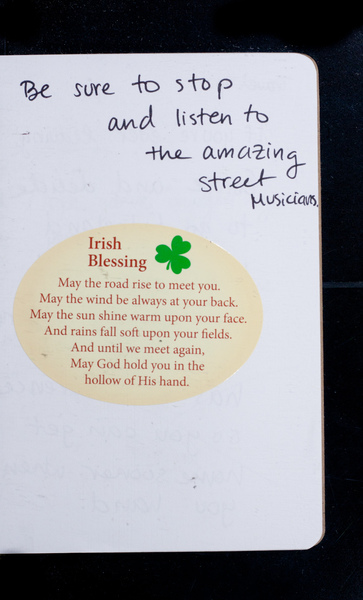 Be sure to stop
and listen to
the amazing
street
Musicians.
Irish
Blessing
May the road rise to meet you.
May the wind be always at your back.
May the sun shine warm upon your face.
And rains fall soft upon your fields.
And until we meet again,
May God hold you in the
hollow of His hand.